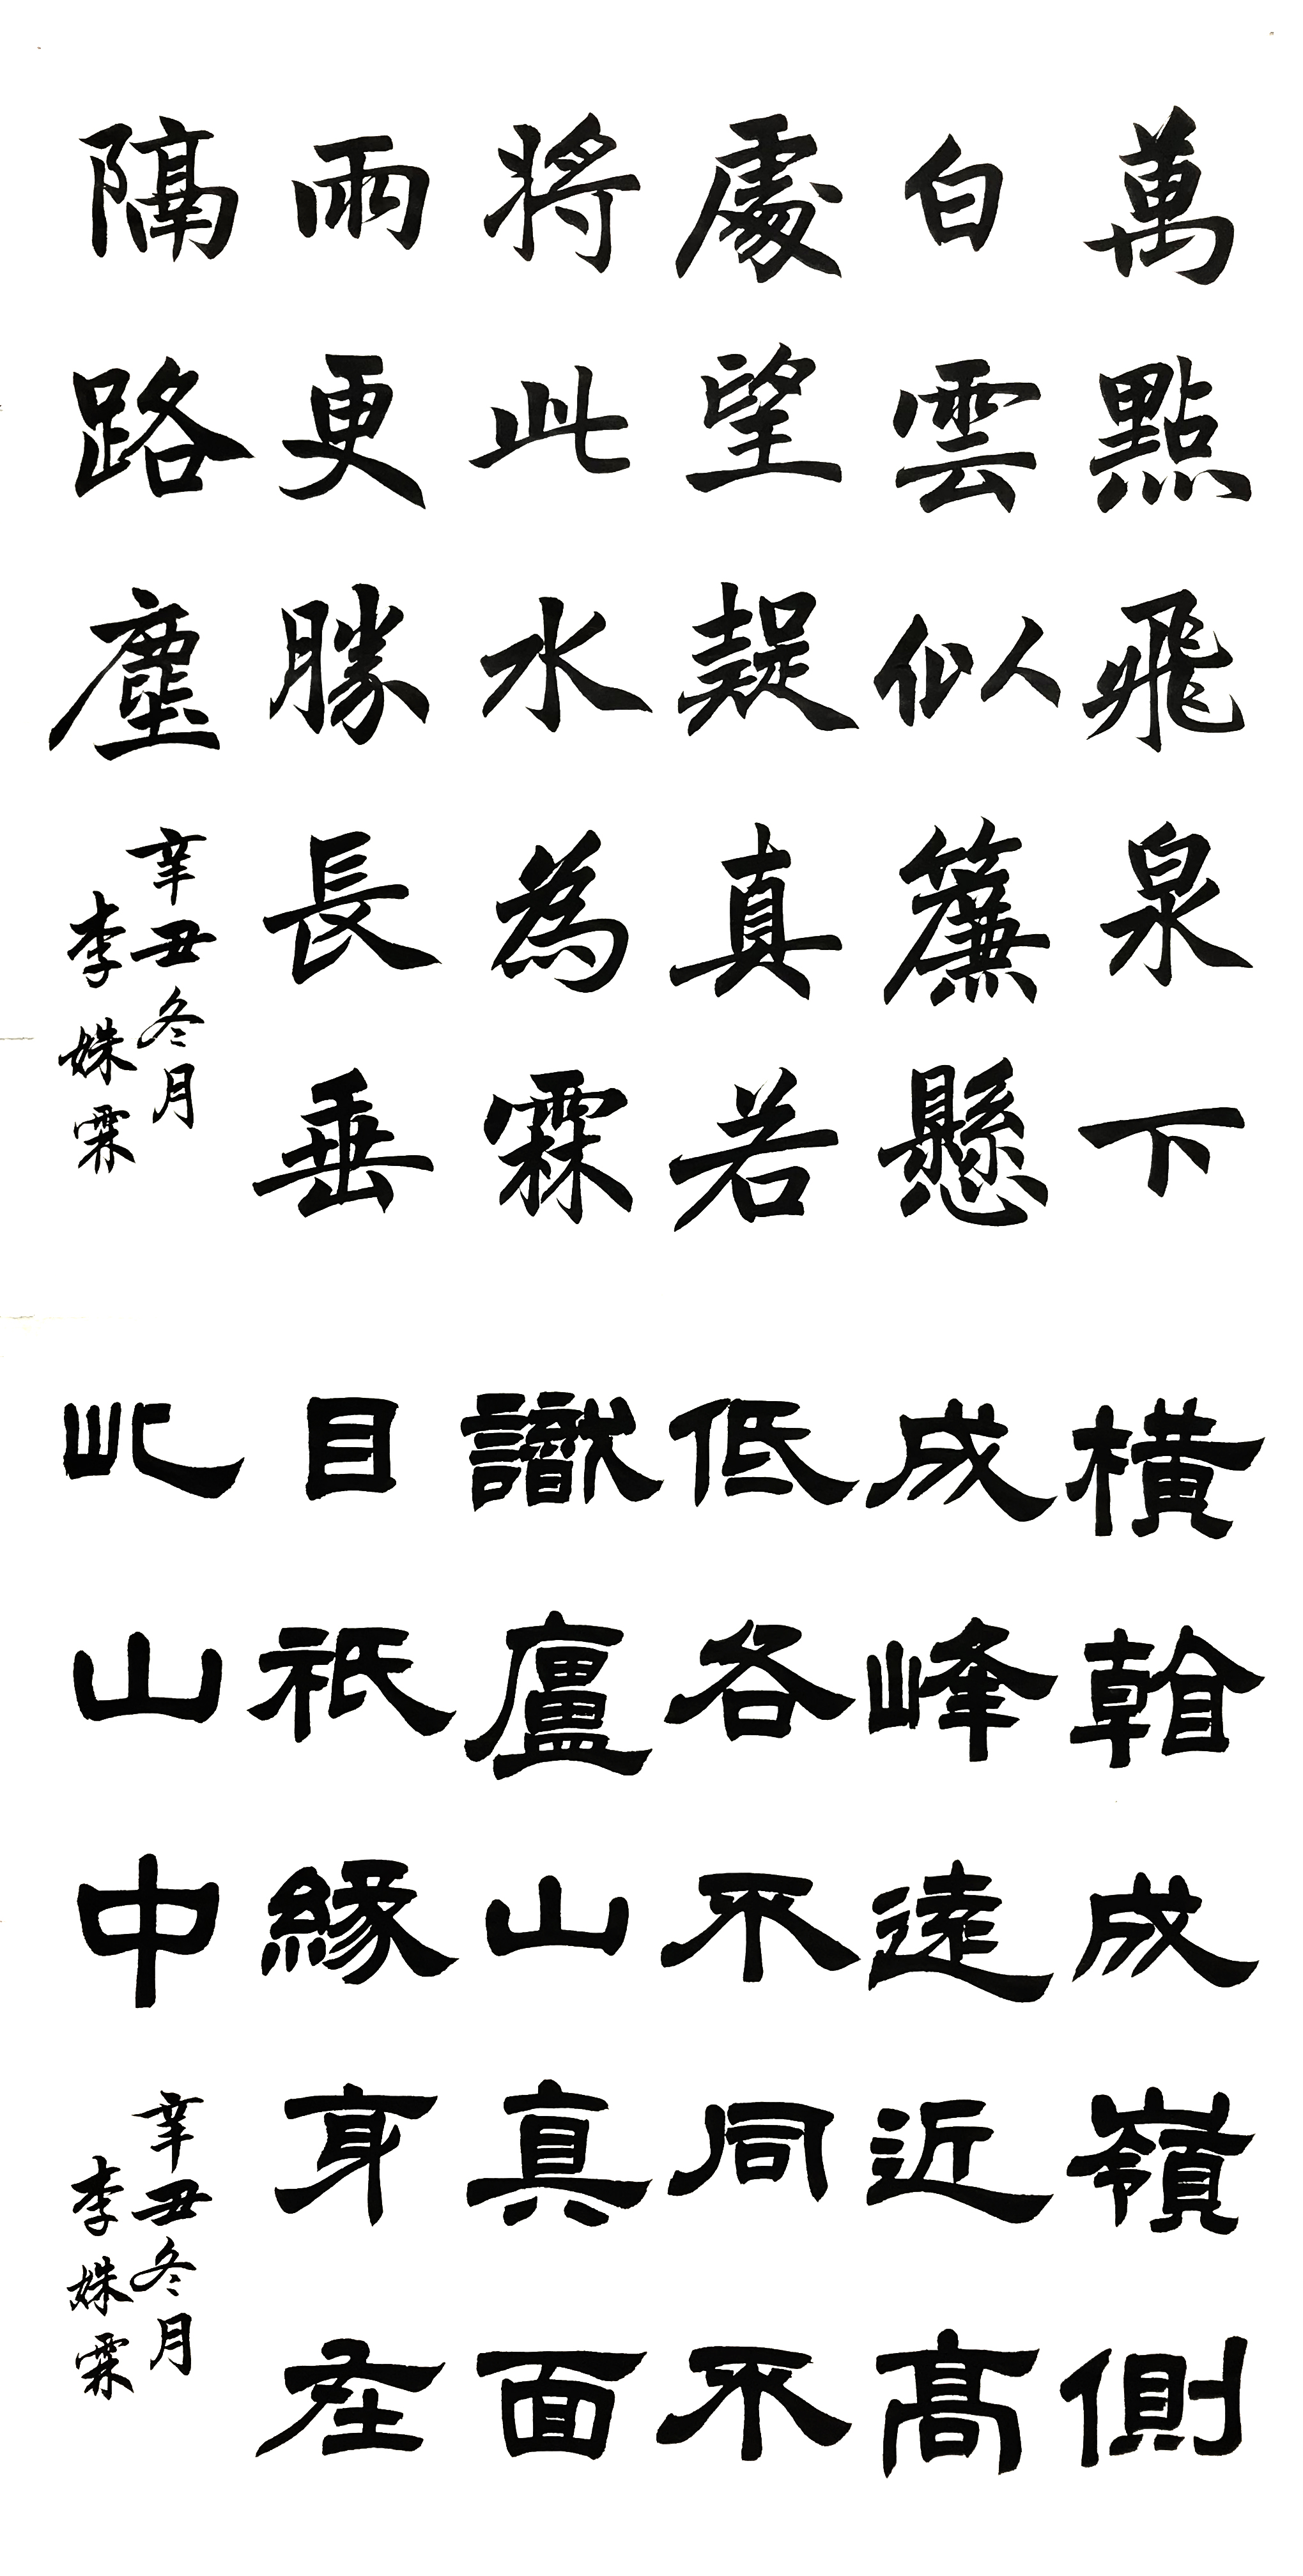 萬點飛泉下
白雲似簾懸
處望疑真若
將此水為霖
雨更勝長垂
隔路塵
辛丑冬月
李姝霖
橫看成嶺側
成峰遠近高
低各不同不
識廬山真面
目衹緣身在
此山中
辛丑冬月
李姝霖